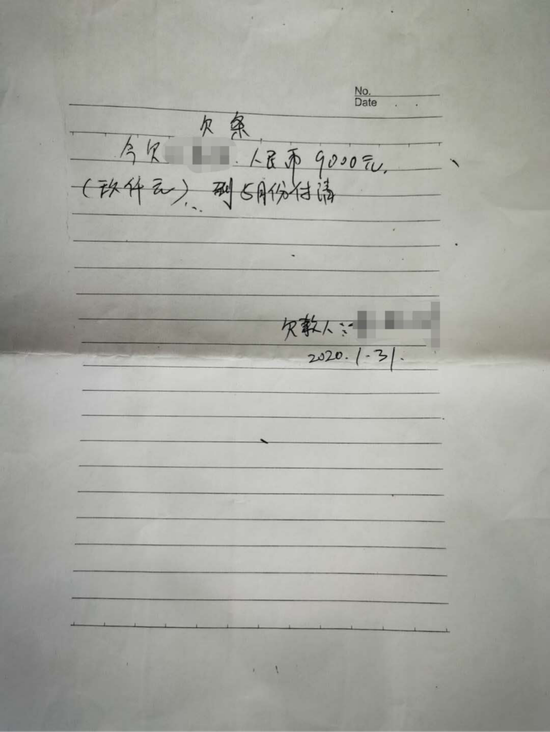 No.
Date . .
欠条
今欠 人民币9000元.
(玖仟元). 到5月份付清
欠款人:
2020.1.31.